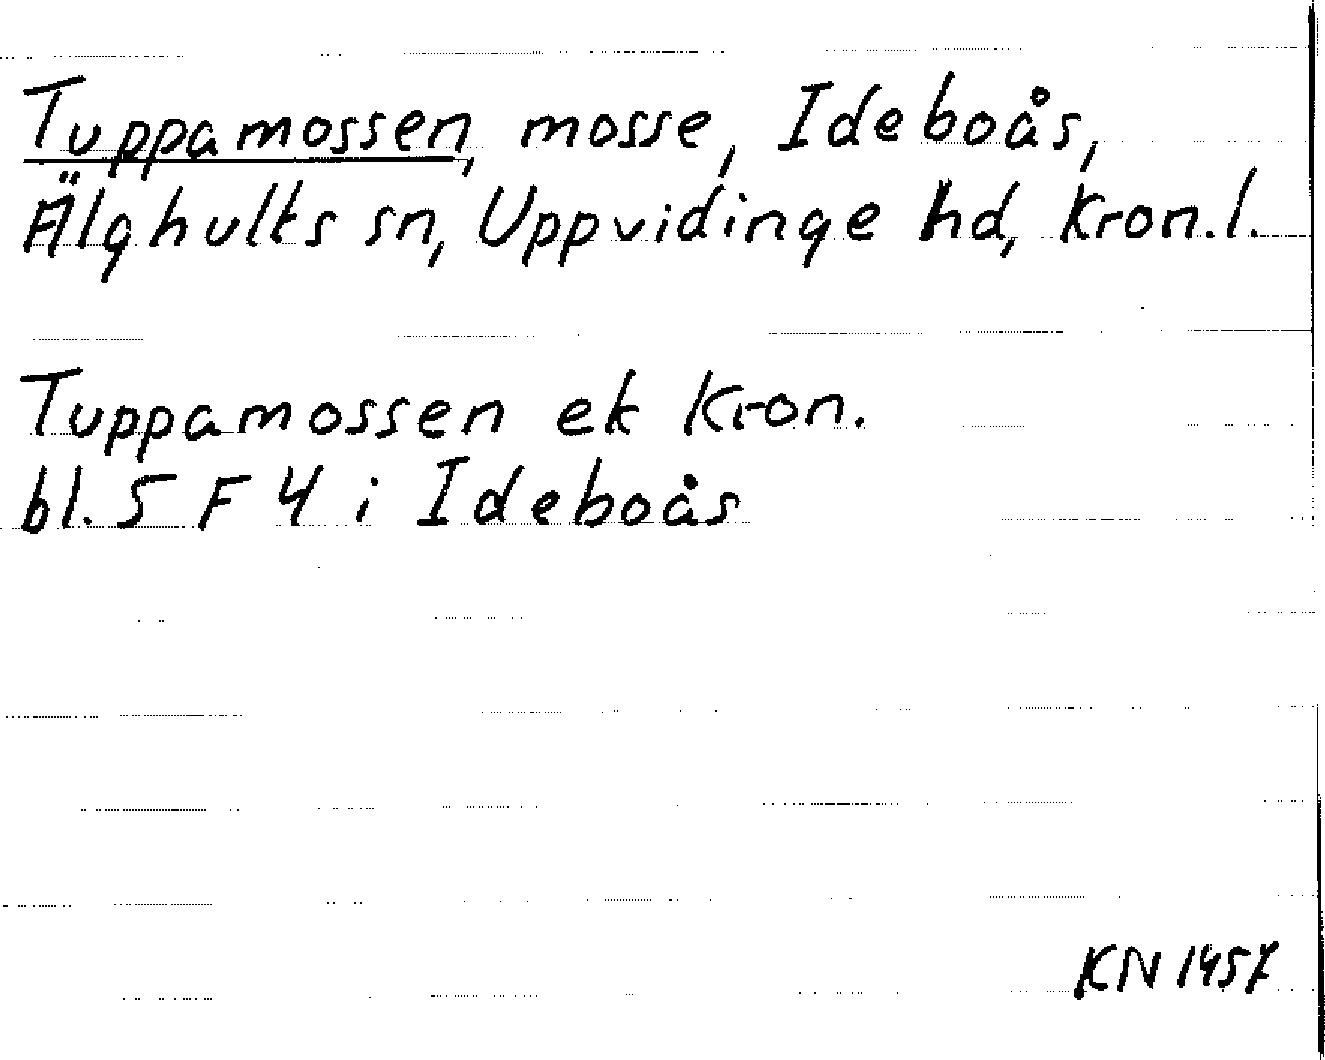 Tuppamossen, mosse, Ideboås,
Älghults sn, Uppvidinge hd, Kron.l.
Tuppamossen ek Kron.
bl. 5 F 4 i Ideboås
KN 1457